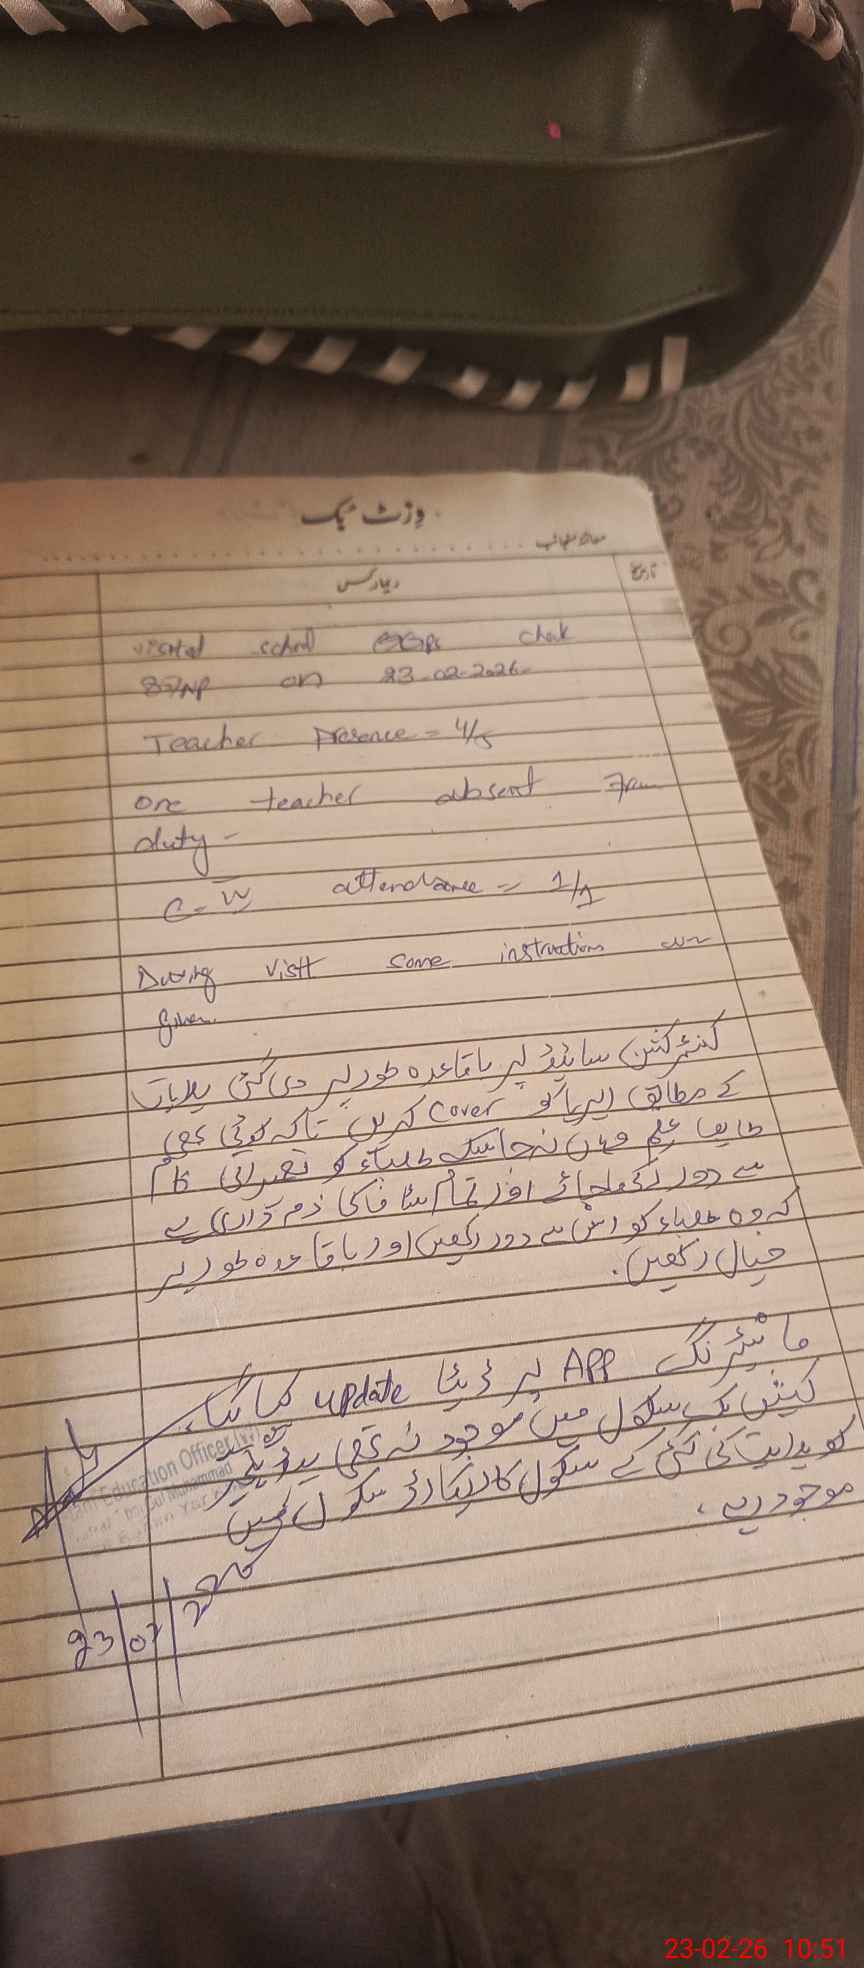 وزٹ بک
معائنہ منجانب
تاریخ
ریمارکس
visited school GGPS chak
87/NP on 23-02-2026
Teacher Presence = 4/5
one teacher absent from
duty -
C-IV attendance = 1/1
During visit some instructions are
given.
کنسٹرکشن سائیڈ پر باقاعدہ طور پر دی گئی ہدایات
کے مطابق ایریا کو cover کریں تاکہ کوئی بھی
طالب علم وہاں نہ جا سکے طلباء کو تعمیراتی کام
سے دور رکھا جائے اور تمام سٹاف کی ذمہ داری ہے
کہ وہ طلباء کو اس سے دور رکھیں اور باقاعدہ طور پر
خیال رکھیں.
مانیٹرنگ APP پر ڈیٹا update کیا گیا.
کیش بک سکول میں موجود نہ تھی ہیڈ ٹیچر
کو ہدایت کی گئی کے سکول کا ریکارڈ سکول میں
موجود رہے.
Education Officer (W)
Muhammad
23/02/2026
23-02-26 10:51